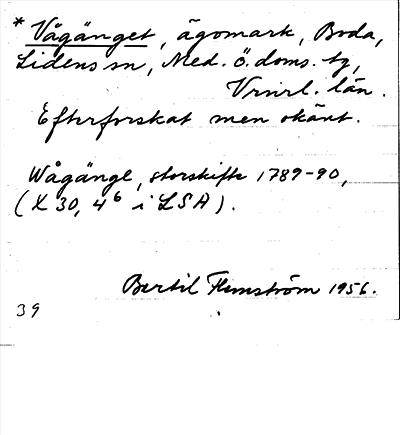 * Vågänget, ägomark, Boda,
Lidens sn, Med. ö. doms. tg,
Vrnrl. län.
Efterforskat men okänt.
Wågänge, storskifte 1789-90,
(X 30, 4⁶ i LSA).
Bertil Flemström 1956.
39